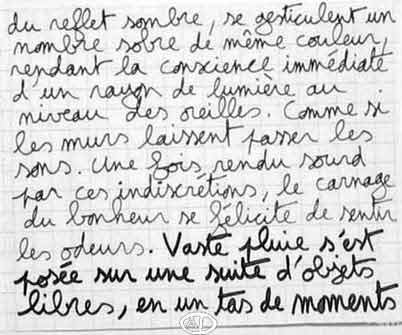 du reflet sombre, se gesticulent un
nombre sobre de même couleur,
rendant la conscience immédiate
d'un rayon de lumière au
niveau des oreilles. Comme si
les murs laissent passer les
sons. Une fois rendu sourd
par ces indiscrétions, le carnage
du bonheur se félicite de sentir
les odeurs. Vaste pluie s'est
posée sur une suite d'objets
libres, en un tas de moments